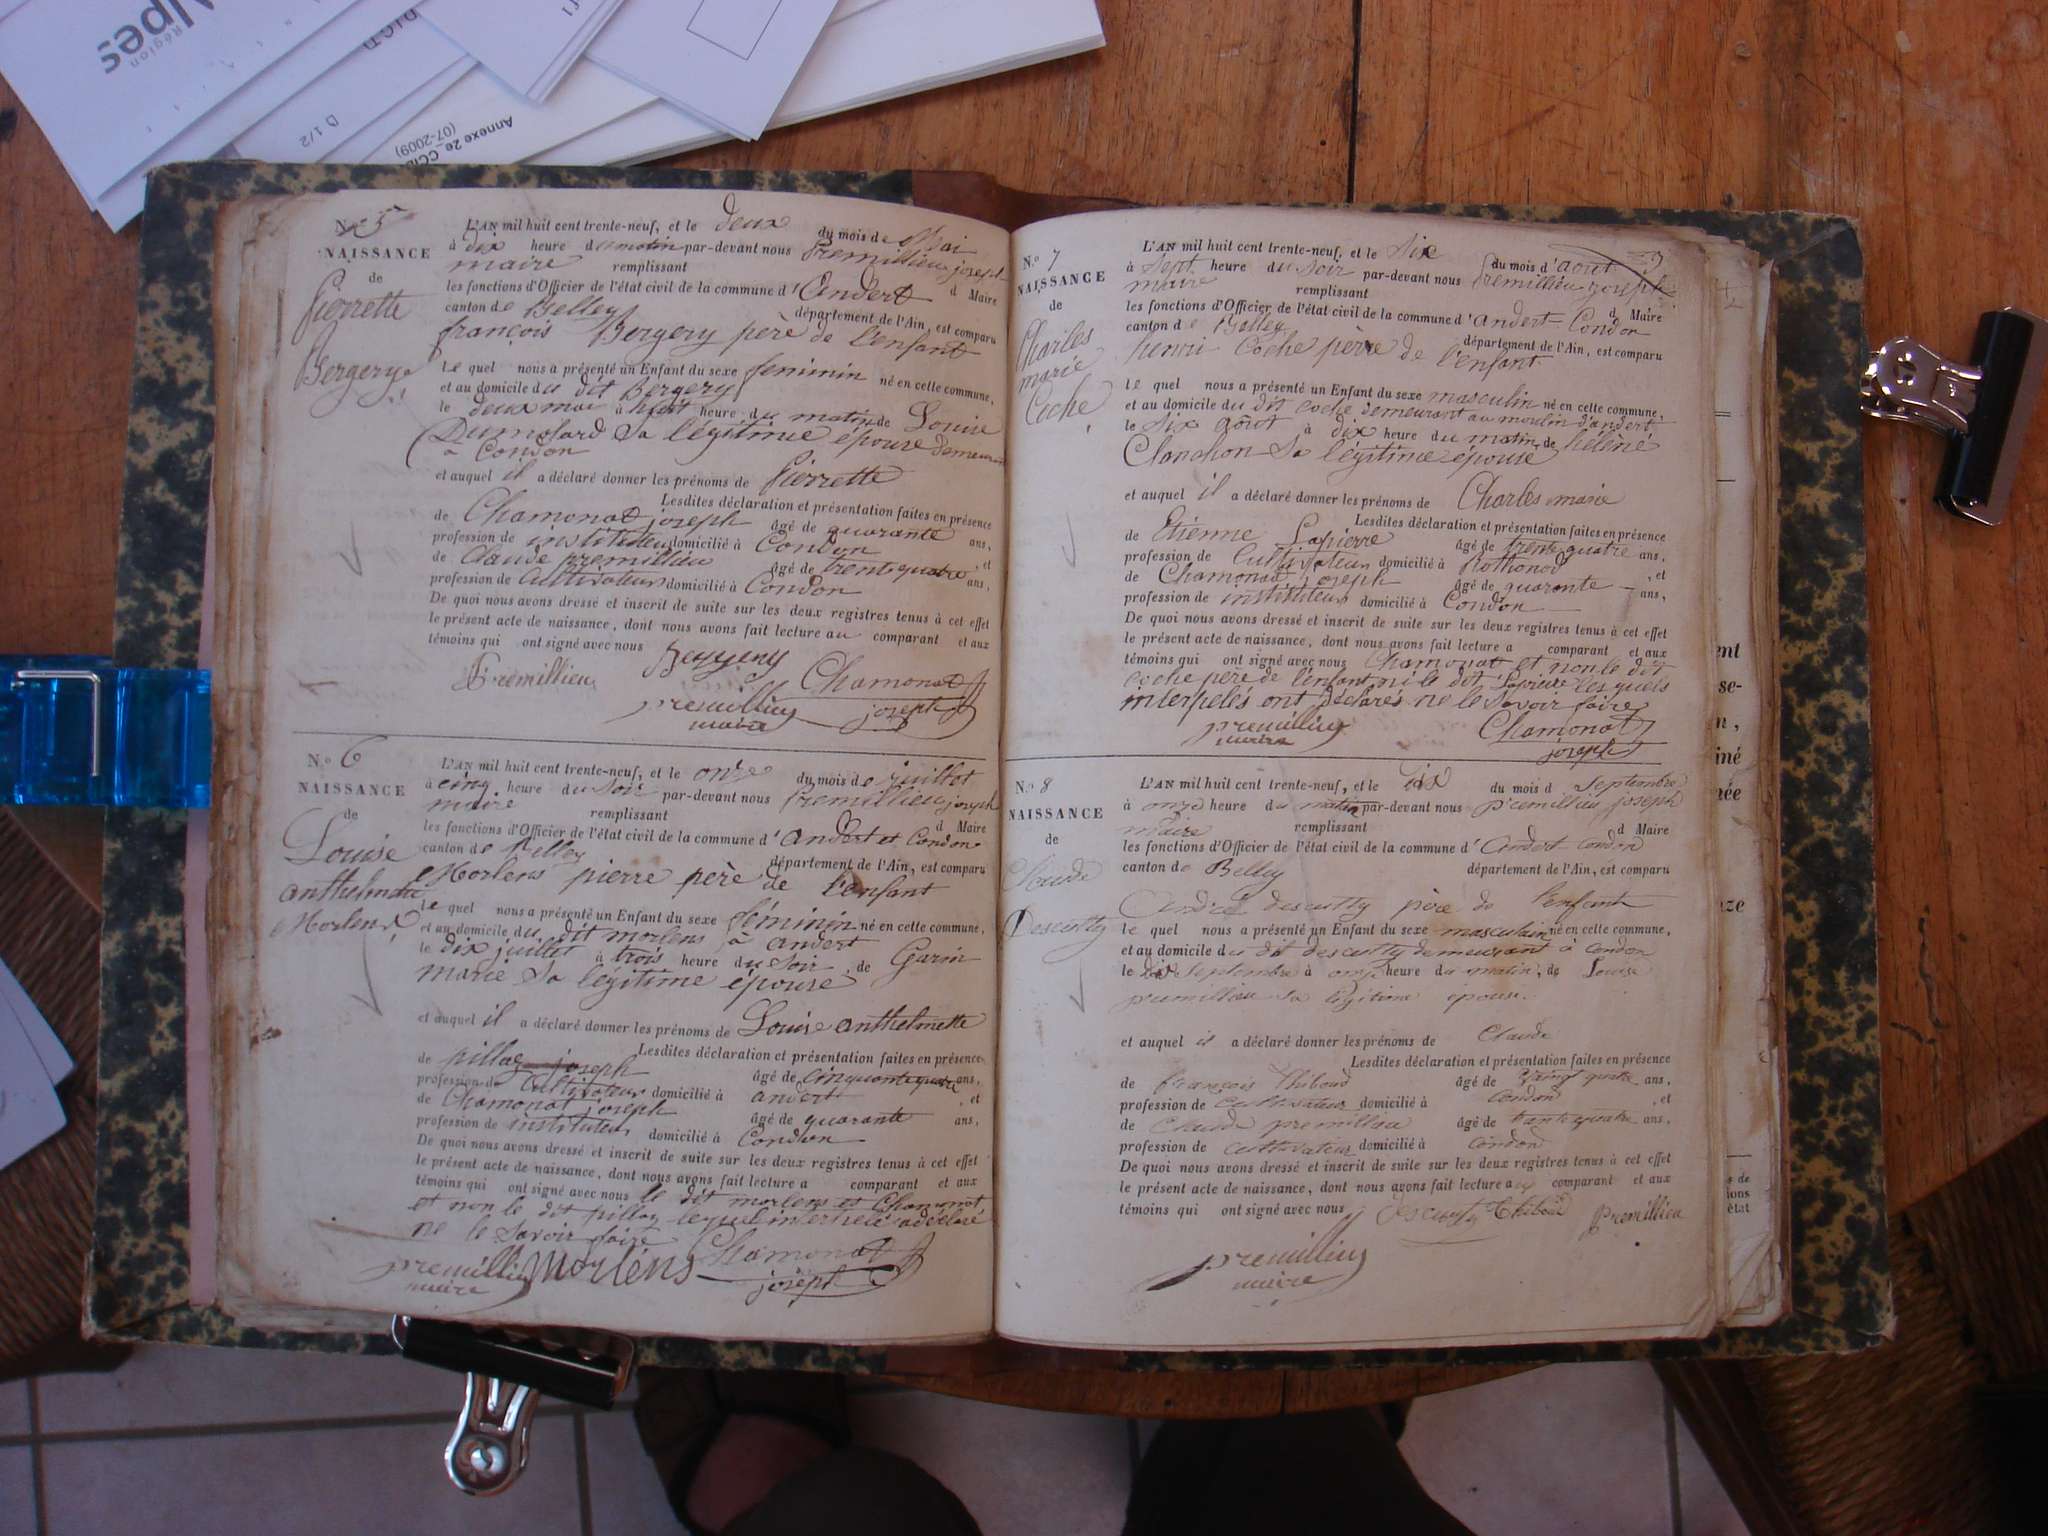 Région
Alpes
D 1/2
Annexe 2e_CCI
(07-2009)
N.º 5
NAISSANCE
de
Pierrette
Bergery
L'AN mil huit cent trente-neuf, et le deux du mois de Mai
à dix heure du matin par-devant nous Premillieu joseph
maire remplissant
les fonctions d'Officier de l'état civil de la commune d'Andert d Maire
canton de Belley département de l'Ain, est comparu
françois Bergery père de l'enfant
Le quel nous a présenté un Enfant du sexe feminin né en cette commune,
et au domicile du dit Bergery
le deux mai à huit heure du matin de Louise
Dumolard sa légitime épouse demeurant
à Condon
et auquel il a déclaré donner les prénoms de Pierrette
Lesdites déclaration et présentation faites en présence
de Chamonat joseph âgé de quarante ans,
profession de instituteur domicilié à Condon , et
de Claude premillieu âgé de trente quatre ans,
profession de Cultivateur domicilié à Condon
De quoi nous avons dressé et inscrit de suite sur les deux registres tenus à cet effet
le présent acte de naissance, dont nous avons fait lecture au comparant et aux
témoins qui ont signé avec nous Bergery
Premillieu Chamonat
premillieu joseph
maire
N.º 6
NAISSANCE
de
Louise
anthelmette
Morlens
L'AN mil huit cent trente-neuf, et le onze du mois de juillet
à cinq heure du soir par-devant nous Premillieu joseph
maire remplissant
les fonctions d'Officier de l'état civil de la commune d'andert et Condon d Maire
canton de Belley département de l'Ain, est comparu
Morlens pierre père de l'enfant
Le quel nous a présenté un Enfant du sexe féminin né en cette commune,
et au domicile du dit morlens à andert
le dix juillet à trois heure du soir, de Garin
marie sa légitime épouse
et auquel il a déclaré donner les prénoms de Louise anthelmette
Lesdites déclaration et présentation faites en présence
de pillaz joseph âgé de cinquante quatre ans,
profession de Cultivateur domicilié à andert , et
de Chamonat joseph âgé de quarante ans,
profession de instituteur domicilié à Condon
De quoi nous avons dressé et inscrit de suite sur les deux registres tenus à cet effet
le présent acte de naissance, dont nous avons fait lecture a comparant et aux
témoins qui ont signé avec nous le dit morlens et Chamonat
et non le dit pillaz lequel interpelé a déclaré
ne le savoir faire
premillieu Morléns Chamonat
maire joseph
3
N.º 7
NAISSANCE
de
Charles
marie
Coche
L'AN mil huit cent trente-neuf, et le six du mois d'août
à sept heure du soir par-devant nous Premillieu joseph
maire remplissant
les fonctions d'Officier de l'état civil de la commune d'andert Condon d Maire
canton de Belley département de l'Ain, est comparu
henri Coche père de l'enfant
Le quel nous a présenté un Enfant du sexe masculin né en cette commune,
et au domicile du dit coche demeurant au moulin d'andert
le six août à dix heure du matin de héléné
Clanchon sa légitime épouse
et auquel il a déclaré donner les prénoms de Charles marie
Lesdites déclaration et présentation faites en présence
de Etienne Lapierre âgé de trente quatre ans,
profession de Cultivateur domicilié à Rothonod , et
de Chamonat joseph âgé de quarante ans,
profession de instituteur domicilié à Condon
De quoi nous avons dressé et inscrit de suite sur les deux registres tenus à cet effet
le présent acte de naissance, dont nous avons fait lecture a comparant et aux
témoins qui ont signé avec nous Chamonat et non le dit
coche père de l'enfant ni le dit Lapierre les quels
interpelés ont déclarés ne le savoir faire
premillieu Chamonat
maire joseph
N.º 8
NAISSANCE
de
Claude
Descutty
L'AN mil huit cent trente-neuf, et le Dix du mois d septembre
à onze heure du matin par-devant nous premillieu joseph
maire remplissant
d Maire
les fonctions d'Officier de l'état civil de la commune d'andert Condon
canton de Belley département de l'Ain, est comparu
André descutty père de l'enfant
Le quel nous a présenté un Enfant du sexe masculain né en cette commune,
et au domicile du dit descutty demeurant à condon
le dix septembre à onze heure du matin, de Louise
premillieu sa légitime épouse.
et auquel il a déclaré donner les prénoms de Claude
Lesdites déclaration et présentation faites en présence
de françois thiboud âgé de quatre ans,
profession de cultivateur domicilié à Condon , et
de Claude premillieu âgé de trente quatre ans,
profession de cultivateur domicilié à Condon
De quoi nous avons dressé et inscrit de suite sur les deux registres tenus à cet effet
le présent acte de naissance, dont nous avons fait lecture au comparant et aux
témoins qui ont signé avec nous descutty thiboud premillieu
premillieu
maire